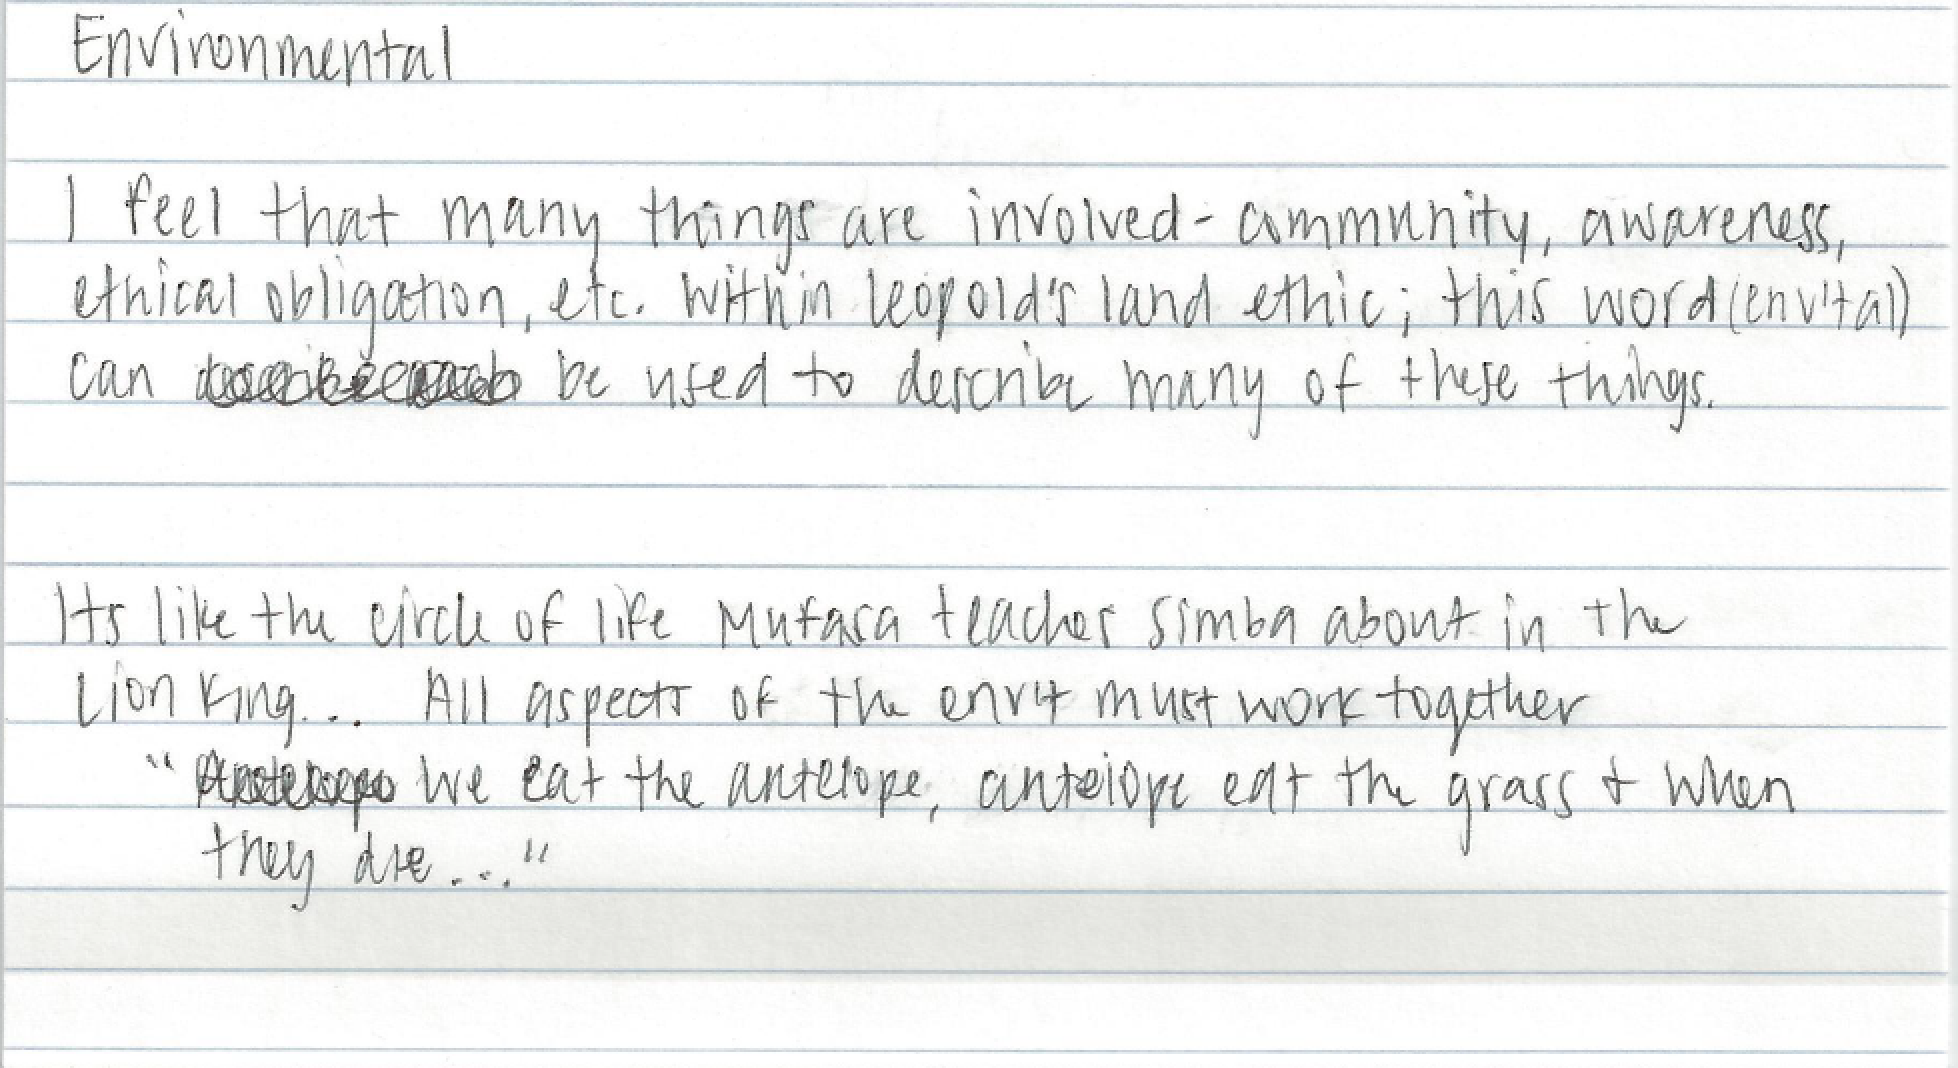 Environmental
I feel that many things are involved - community, awareness,
ethical obligation, etc. Within leopold's land ethic; this word (env'tal)
can be used to describe many of these things.
Its like the circle of life Mufasa teaches Simba about in the
Lion King... All aspects of the env't must work together
" We eat the antelope, antelope eat the grass & when
they die..."